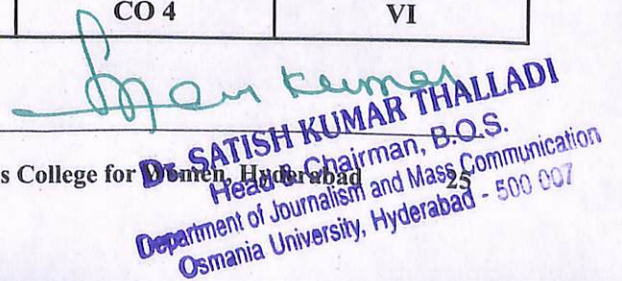 CO 4 VI
Kumar
s College for Women, Hyderabad 25
Dr. SATISH KUMAR THALLADI
Head & Chairman, B.O.S.
Department of Journalism and Mass Communication
Osmania University, Hyderabad - 500 007